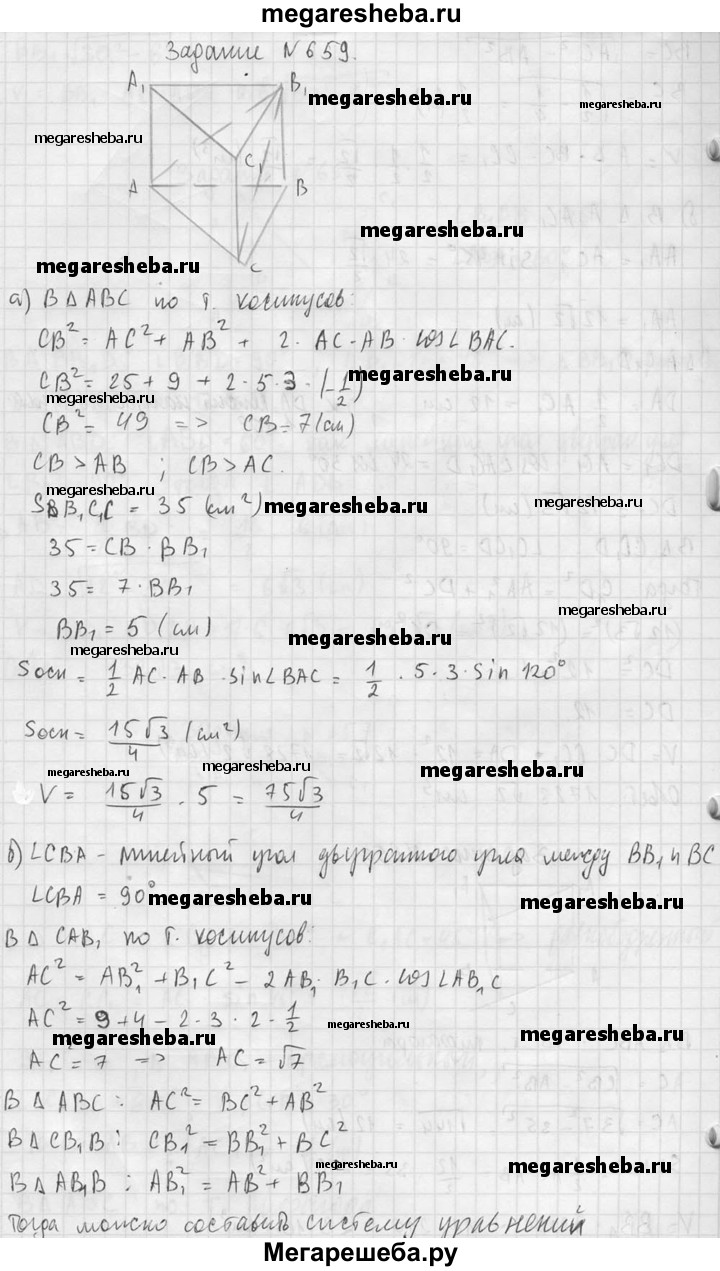 megaresheba.ru
Задание №659.
A₁ B₁
megaresheba.ru
megaresheba.ru
megaresheba.ru
C₁
A B
megaresheba.ru
megaresheba.ru
C
а) В Δ ABC по т. косинусов:
CB² = AC² + AB² + 2 · AC · AB · cos∠BAC.
megaresheba.ru
CB² = 25 + 9 + 2 · 5 · 3 · (-1/2)
megaresheba.ru
CB² = 49 => CB = 7 (см)
CB > AB ; CB > AC.
megaresheba.ru
megaresheba.ru
megaresheba.ru
S BB₁C₁C = 35 (см²)
35 = CB · BB₁
35 = 7 · BB₁
megaresheba.ru
BB₁ = 5 (см)
megaresheba.ru
megaresheba.ru
Sосн = 1/2 AC · AB · sin∠BAC = 1/2 · 5 · 3 · sin 120°
Sосн = 15√3/4 (см²)
megaresheba.ru
megaresheba.ru
megaresheba.ru
V = 15√3/4 · 5 = 75√3/4
б) ∠CBA - линейный угол двугранного угла между BB₁ и BC
∠CBA = 90°
megaresheba.ru
megaresheba.ru
В Δ CAB₁ по т. косинусов:
AC² = AB₁² + B₁C² - 2AB₁ · B₁C · cos∠AB₁C
AC² = 9 + 4 - 2 · 3 · 2 · 1/2
megaresheba.ru
megaresheba.ru
megaresheba.ru
AC² = 7 => AC = √7
В Δ ABC : AC² = BC² + AB²
В Δ CB₁B : CB₁² = BB₁² + BC²
megaresheba.ru
megaresheba.ru
В Δ AB₁B : AB₁² = AB² + BB₁
Тогда можно составить систему уравнений
Мегарешеба.ру